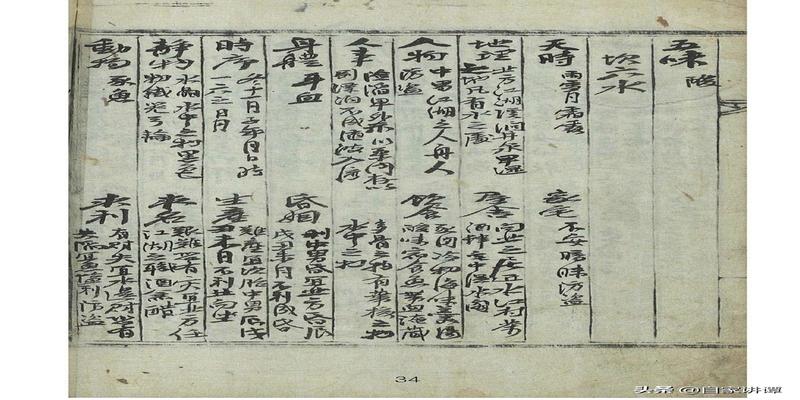 五味 酸
坎六水
天時 雨雪月霜露
家宅 不安暗昧防盜
地理 北方江湖溪澗井泉卑濕
之地凡有水之處
居舍 向北之居近水江村茅
酒肆
人物 中男江湖之人舟人
防盜
飲食 豕肉冷物海味羹湯
酸味宿食魚帶血
人事 險陷卑外示以柔內
漂泊不成隨波入流
多骨之物有華核之物
水中之物
身體 耳血
婚姻 利中男宜北方婚辰
戌丑未月不利成婚
時序 冬十一月子年月日時
一六之日月
生產 難產宜次胎中男辰戌
丑未日不利
靜物 水中之物黑色
求名 艱難有災宜北方任
江湖之職酒
動物 豕魚
求利 有財失宜水邊財
失陷宜魚鹽利防盜
34
头条 @自家讲谭